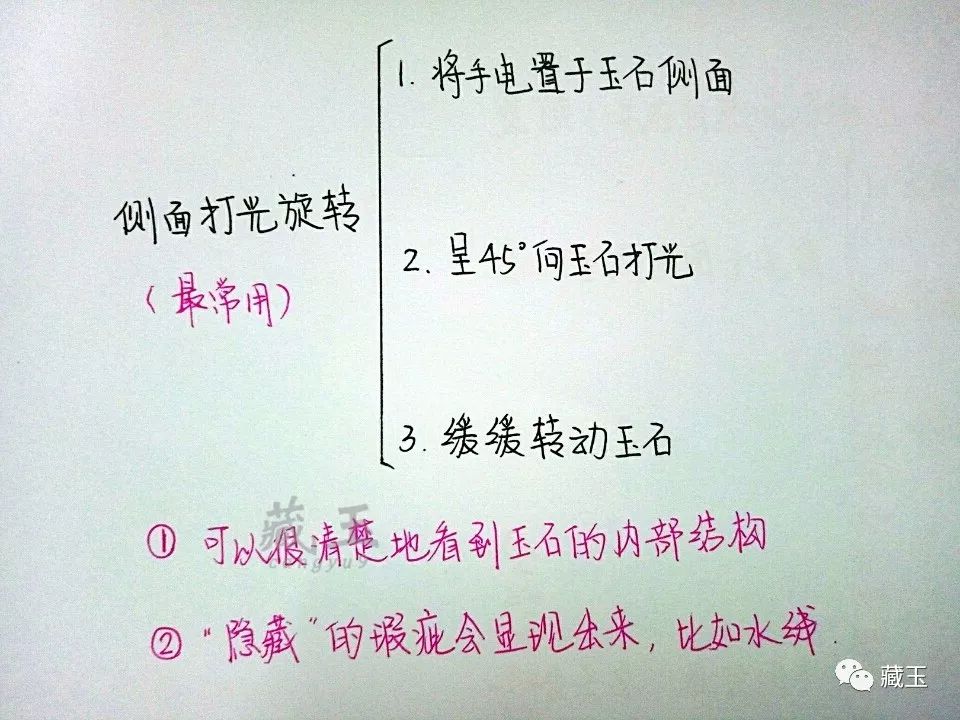 1. 将手电置于玉石侧面
侧面打光旋转
（最常用）
2. 呈45°向玉石打光
3. 缓缓转动玉石
① 可以很清楚地看到玉石的内部结构
② “隐藏”的瑕疵会显现出来，比如水线.
藏玉
cangyu9
藏玉